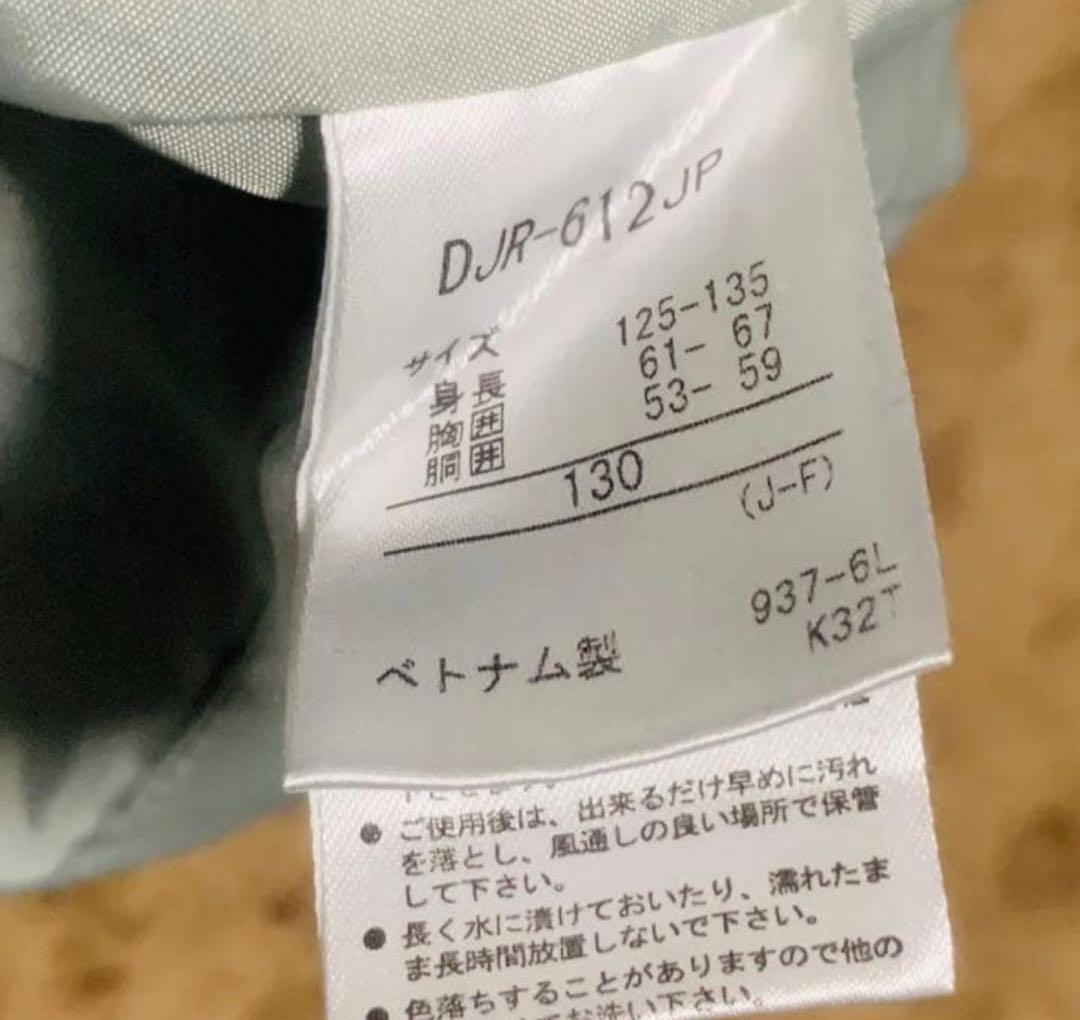 DJR-612JP
サイズ
身長 125-135
胸囲 61- 67
胴囲 53- 59
130
(J-F)
937-6L
K32T
ベトナム製
● ご使用後は、出来るだけ早めに汚れ
を落とし、風通しの良い場所で保管
して下さい。
● 長く水に漬けておいたり、濡れたま
ま長時間放置しないで下さい。
● 色落ちすることがありますので他の
てお洗い下さい。